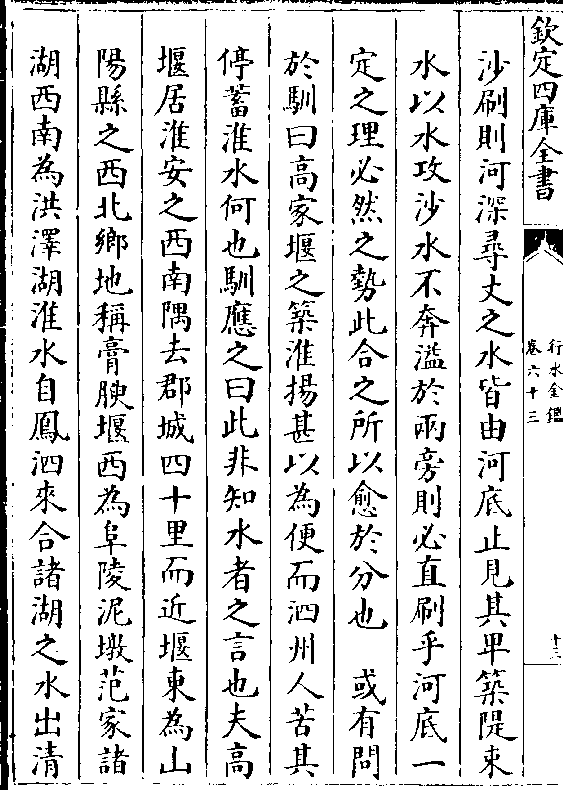 欽定四庫全書
行水金鑑
卷六十三
十三
沙刷則河深尋丈之水皆由河底止見其卑築隄束
水以水攻沙水不奔溢於兩旁則必直刷乎河底一
定之理必然之勢此合之所以愈於分也　或有問
於馴曰高家堰之築淮揚甚以為便而泗州人苦其
停蓄淮水何也馴應之曰此非知水者之言也夫高
堰居淮安之西南隅去郡城四十里而近堰東為山
陽縣之西北鄉地稱膏腴堰西為阜陵泥墩范家諸
湖西南為洪澤湖淮水自鳳泗來合諸湖之水出清